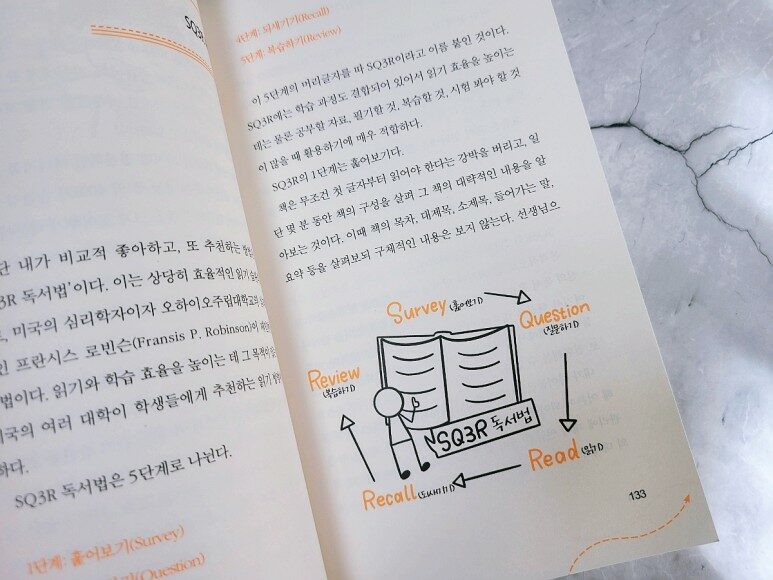 SQ3R
단 내가 비교적 좋아하고, 또 추천하는
3R 독서법'이다. 이는 상당히 효율적인 읽기
미국의 심리학자이자 오하이오주립대학교의
인 프란시스 로빈슨(Fransis P. Robinson)이
법이다. 읽기와 학습 효율을 높이는 데 그 목적이
미국의 여러 대학이 학생들에게 추천하는 읽기
하다.
SQ3R 독서법은 5단계로 나뉜다.
1단계: 훑어보기(Survey)
(Question)
4단계: 되새기기(Recall)
5단계: 복습하기(Review)
이 5단계의 머리글자를 따 SQ3R이라고 이름 붙인 것이다.
SQ3R에는 학습 과정도 결합되어 있어서 읽기 효율을 높이는
데는 물론 공부할 자료, 필기할 것, 복습할 것, 시험 봐야 할 것
이 많을 때 활용하기에 매우 적합하다.
SQ3R의 1단계는 훑어보기다.
책은 무조건 첫 글자부터 읽어야 한다는 강박을 버리고, 일
단 몇 분 동안 책의 구성을 살펴 그 책의 대략적인 내용을 알
아보는 것이다. 이때 책의 목차, 대제목, 소제목, 들어가는 말,
요약 등을 살펴보되 구체적인 내용은 보지 않는다. 선생님으
Survey (훑어보기)
Question
(질문하기)
Review
(복습하기)
SQ3R 독서법
Read (읽기)
Recall (되새기기)
133